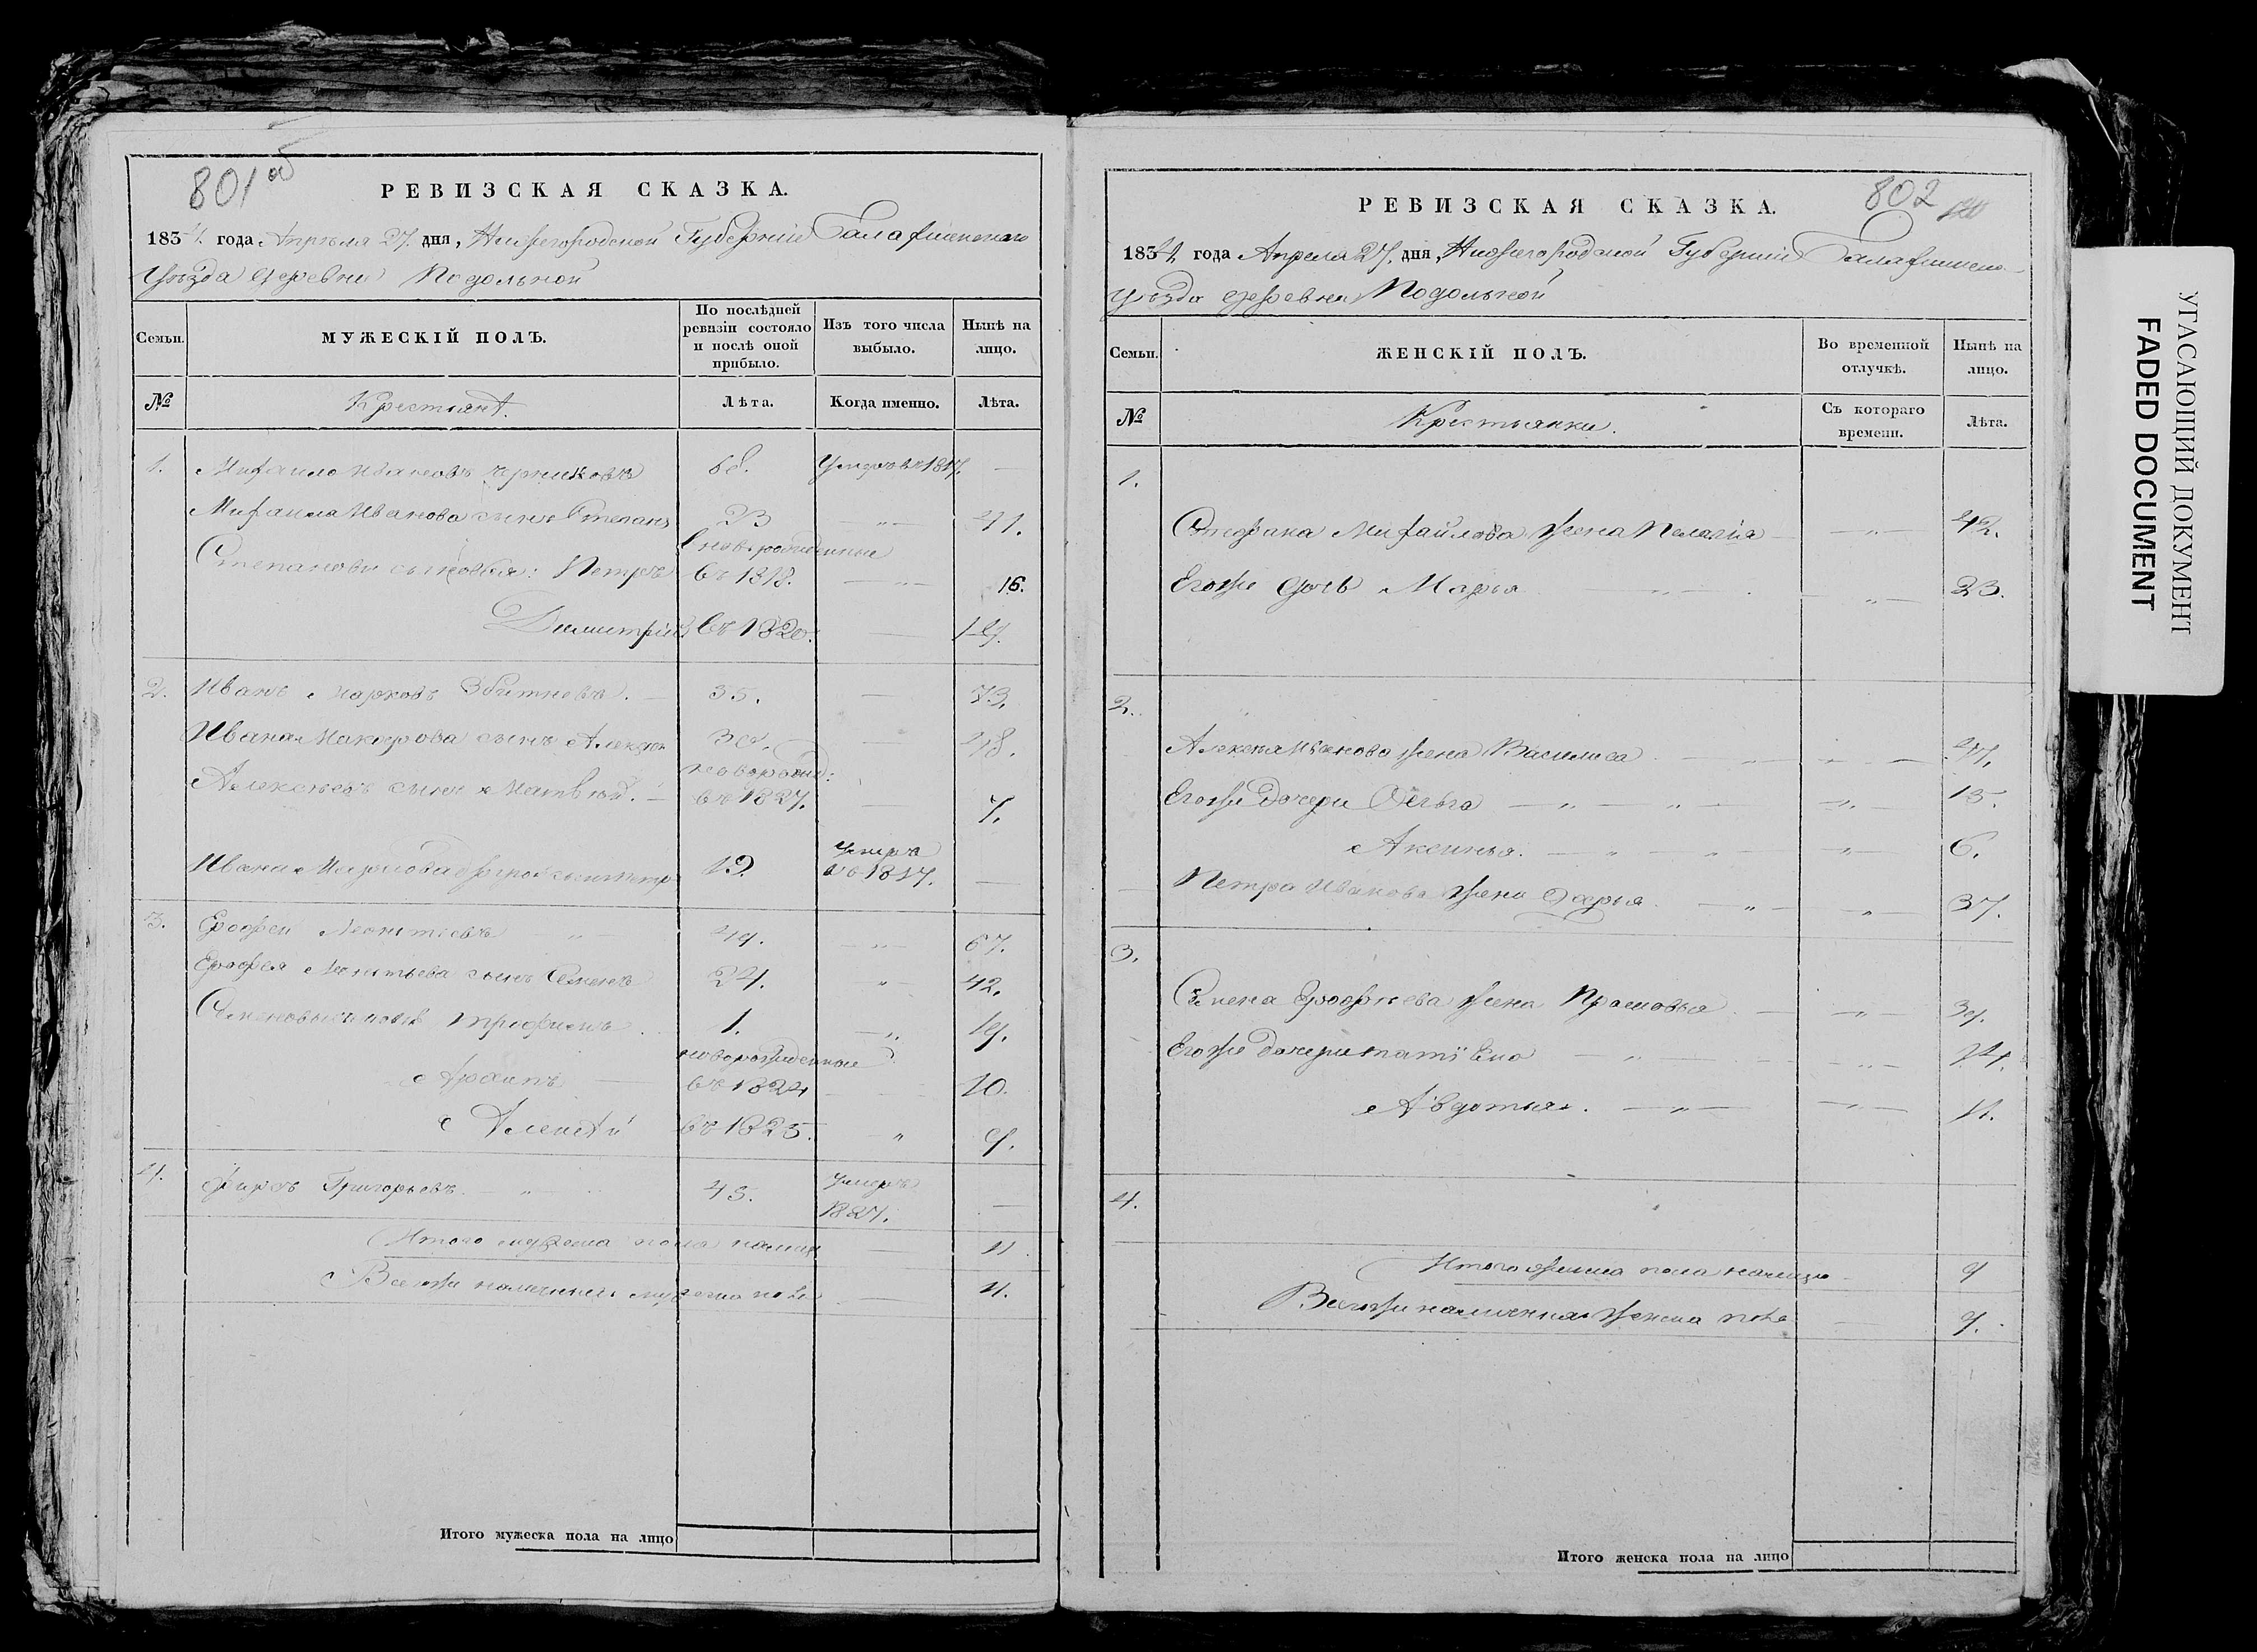 801 об
РЕВИЗСКАЯ СКАЗКА.
1834. года Апрѣля 27. дня, Нижегородской Губерніи Балахнинскаго
Уѣзда деревни Подольной
Семьи.
МУЖЕСКІЙ ПОЛЪ.
По послѣдней ревизіи состояло и послѣ оной прибыло.
Изъ того числа выбыло.
Нынѣ на лицо.
№
Крестьянѣ.
Лѣта.
Когда именно.
Лѣта.
1. Михаило Ивановъ 68. Умеръ въ 1817. —
Михаила Иванова сынъ Степанъ 23 — „ — 41.
новорожденные
Степановы сыновья: Петръ въ 1818. — „ — 16.
Димитрій въ 1820. — 14.
2. Иванъ Марковъ 55. — 73.
Ивана Маркова сынъ Алексѣй 30. — 48.
новорожд:
Алексѣевъ сынъ Матвѣй. — въ 1827. — 7.
умеръ
Ивана Маркова сынъ Петръ 19. въ 1817. —
3. Ерофей Леонтіевъ — „ — 49. — „ — 67.
Ерофея Леонтьева сынъ Семенъ 24. „ 42.
Семеновы сыновья Трифонъ 1. — „ 19.
новорожденные
Архипъ — въ 1824 10.
Алексѣй въ 1825. — „ 9.
4. Фирсъ Григорьевъ. — „ 45. умеръ
1827. —
Итого мужеска пола налицо — 11.
Всего же наличныхъ мужеска пола — 11.
Итого мужеска пола на лицо
802
РЕВИЗСКАЯ СКАЗКА.
1834. года Апрѣля 27. дня, Нижегородской Губерніи Балахнинска-
уѣзда деревни Подольной
Семьи.
ЖЕНСКІЙ ПОЛЪ.
Во временной отлучкѣ.
Нынѣ на лицо.
№
Крестьянки.
Съ котораго времени.
Лѣта.
1.
Стефана Михайлова жена Пелагіа — „ — 42.
Егоже дочь Марья — „ — — „ — 23.
2.
Алексѣя Иванова жена Василиса — „ — 47.
Егоже дочери Ольга — „ — „ — — „ 15.
Аксинья. — „ — „ — — „ — 6.
Петра Иванова жена Дарья. — „ — „ — 37.
3.
Семена Ерофѣева жена Прасковья — — „ — 39.
Егоже дочери — „ — — „ — 14.
Авдотья. — „ — — „ — 11.
4.
Итого женска пола налицо — 9
Всегоже наличныхъ женска пола — 9.
Итого женска пола на лицо
УГАСАЮЩИЙ ДОКУМЕНТ
FADED DOCUMENT